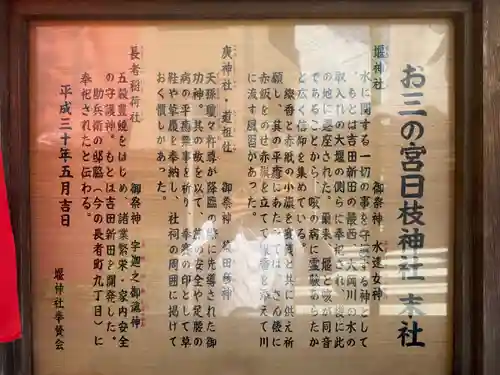 お三の宮日枝神社 末社
堰神社 御祭神 水速女神
水に関する一切の事を守護する神として
もとは吉田新田の最西、大岡川の水の
取入れの大堰の側らに奉祀され、後に此
の地に遷座された。爾来、堰と咳が同音
であることから、咳の病に霊験あらたか
と広く信仰を集めている。
線香と赤紙の小旗を賽銭と共に供え祈
願し、其の平癒にあたっては、さん俵に
赤飯をのせ赤旗を立て線香を添えて川
に流す風習があった。
庚神社・道祖神 御祭神 猿田彦神
天孫瓊々杵尊が降臨の際に先導された御
功神。其の故を以て、道の安全や足腰の
病の平癒無事を祈り、奉賽の印として草
鞋や草履を奉納し、社祠の周囲に掲げて
おく慣しがあった。
長者稲荷社 御祭神 宇迦之御魂神
五穀豊饒をはじめ、諸業繁栄・家内安全
の守護神。もとは吉田新田を開発した。
助兵衛の邸蹟(今の長者町九丁目)に
奉祀されたと伝わる。
平成三十年五月吉日
堰神社奉賛会